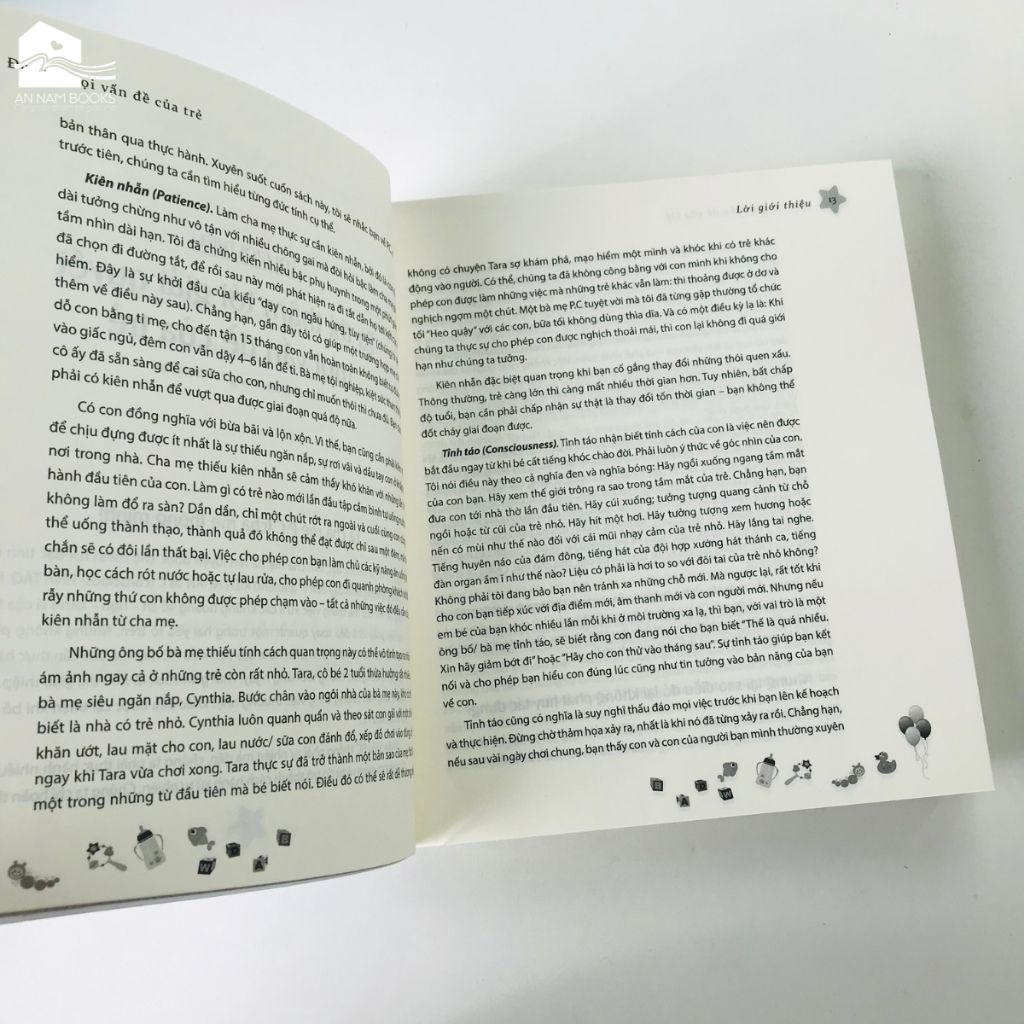 AN NAM BOOKS
ọi vấn đề của trẻ
bản thân qua thực hành. Xuyên suốt cuốn sách này, tôi sẽ nhắc bạn về P.
trước tiên, chúng ta cần tìm hiểu từng đức tính cụ thể.
Kiên nhẫn (Patience). Làm cha mẹ thực sự cần kiên nhẫn, bởi đó là con
dài tưởng chừng như vô tận với nhiều chông gai mà đòi hỏi bậc làm cha mẹ
tầm nhìn dài hạn. Tôi đã chứng kiến nhiều bậc phụ huynh trong một phút
đã chọn đi đường tắt, để rồi sau này mới phát hiện ra đi tắt dẫn họ tới
hiểm. Đây là sự khởi đầu của kiểu "dạy con ngẫu hứng, tùy tiện" (chúng ta
thêm về điều này sau). Chẳng hạn, gần đây tôi có giúp một trường hợp mẹ
dỗ con bằng ti mẹ, cho đến tận 15 tháng con vẫn hoàn toàn không biết tự
vào giấc ngủ, đêm con vẫn dậy 4–6 lần để ti. Bà mẹ tội nghiệp, kiệt sức
cô ấy đã sẵn sàng để cai sữa cho con, nhưng chỉ muốn thôi thì chưa đủ. Bạn
phải có kiên nhẫn để vượt qua được giai đoạn quá độ nữa.
Có con đồng nghĩa với bừa bãi và lộn xộn. Vì thế, bạn cũng cần phải
để chịu đựng được ít nhất là sự thiếu ngăn nắp, sự rơi vãi và dấu tay con ở
nơi trong nhà. Cha mẹ thiếu kiên nhẫn sẽ cảm thấy khó khăn với những
hành đầu tiên của con. Làm gì có trẻ nào mới lần đầu tập cầm bình tự uống
không làm đổ ra sàn? Dần dần, chỉ một chút rớt ra ngoài và cuối cùng con
thể uống thành thạo, thành quả đó không thể đạt được chỉ sau một đêm,
chắn sẽ có đôi lần thất bại. Việc cho phép con bạn làm chủ các kỹ năng ăn
bàn, học cách rót nước hoặc tự lau rửa, cho phép con đi quanh phòng khách với
rẫy những thứ con không được phép chạm vào – tất cả những việc đó đều cần
kiên nhẫn từ cha mẹ.
Những ông bố bà mẹ thiếu tính cách quan trọng này có thể vô tình tạo ra
ám ảnh ngay cả ở những trẻ còn rất nhỏ. Tara, cô bé 2 tuổi thừa hưởng
bà mẹ siêu ngăn nắp, Cynthia. Bước chân vào ngôi nhà của bà mẹ này, khó
biết là nhà có trẻ nhỏ. Cynthia luôn quanh quẩn và theo sát con gái với một
khăn ướt, lau mặt cho con, lau nước/ sữa con đánh đổ, xếp đồ chơi vào
ngay khi Tara vừa chơi xong. Tara thực sự đã trở thành một bản sao của mẹ:
một trong những từ đầu tiên mà bé biết nói. Điều đó có thể sẽ rất dễ thương
W D A B
Lời giới thiệu 13
không có chuyện Tara sợ khám phá, mạo hiểm một mình và khóc khi có trẻ khác
động vào người. Có thể, chúng ta đã không công bằng với con mình khi không cho
phép con được làm những việc mà những trẻ khác vẫn làm: thi thoảng được ở dơ và
nghịch ngợm một chút. Một bà mẹ P.C tuyệt vời mà tôi đã từng gặp thường tổ chức
tối "Heo quậy" với các con, bữa tối không dùng thìa dĩa. Và có một điều kỳ lạ là: Khi
chúng ta thực sự cho phép con được nghịch thoải mái, thì con lại không đi quá giới
hạn như chúng ta tưởng.
Kiên nhẫn đặc biệt quan trọng khi bạn cố gắng thay đổi những thói quen xấu.
Thông thường, trẻ càng lớn thì càng mất nhiều thời gian hơn. Tuy nhiên, bất chấp
độ tuổi, bạn cần phải chấp nhận sự thật là thay đổi tốn thời gian – bạn không thể
đốt cháy giai đoạn được.
Tỉnh táo (Consciousness). Tỉnh táo nhận biết tính cách của con là việc nên được
bắt đầu ngay từ khi bé cất tiếng khóc chào đời. Phải luôn ý thức về góc nhìn của con.
Tôi nói điều này theo cả nghĩa đen và nghĩa bóng: Hãy ngồi xuống ngang tầm mắt
của con bạn. Hãy xem thế giới trông ra sao trong tầm mắt của trẻ. Chẳng hạn, bạn
đưa con tới nhà thờ lần đầu tiên. Hãy cúi xuống; tưởng tượng quang cảnh từ chỗ
ngồi hoặc từ cũi của trẻ nhỏ. Hãy hít một hơi. Hãy tưởng tượng xem hương hoặc
nến có mùi như thế nào đối với cái mũi nhạy cảm của trẻ nhỏ. Hãy lắng tai nghe.
Tiếng huyên náo của đám đông, tiếng hát của đội hợp xướng hát thánh ca, tiếng
đàn organ ầm ĩ như thế nào? Liệu có phải là hơi to so với đôi tai của trẻ nhỏ không?
Không phải tôi đang bảo bạn nên tránh xa những chỗ mới. Mà ngược lại, rất tốt khi
cho con bạn tiếp xúc với địa điểm mới, âm thanh mới và con người mới. Nhưng nếu
em bé của bạn khóc nhiều lần mỗi khi ở môi trường xa lạ, thì bạn, với vai trò là một
ông bố/ bà mẹ tỉnh táo, sẽ biết rằng con đang nói cho bạn biết "Thế là quá nhiều.
Xin hãy giảm bớt đi" hoặc "Hãy cho con thử vào tháng sau". Sự tỉnh táo giúp bạn kết
nối và cho phép bạn hiểu con đúng lúc cũng như tin tưởng vào bản năng của bạn
về con.
Tỉnh táo cũng có nghĩa là suy nghĩ thấu đáo mọi việc trước khi bạn lên kế hoạch
và thực hiện. Đừng chờ thảm họa xảy ra, nhất là khi nó đã từng xảy ra rồi. Chẳng hạn,
nếu sau vài ngày chơi chung, bạn thấy con và con của người bạn mình thường xuyên
B A D W